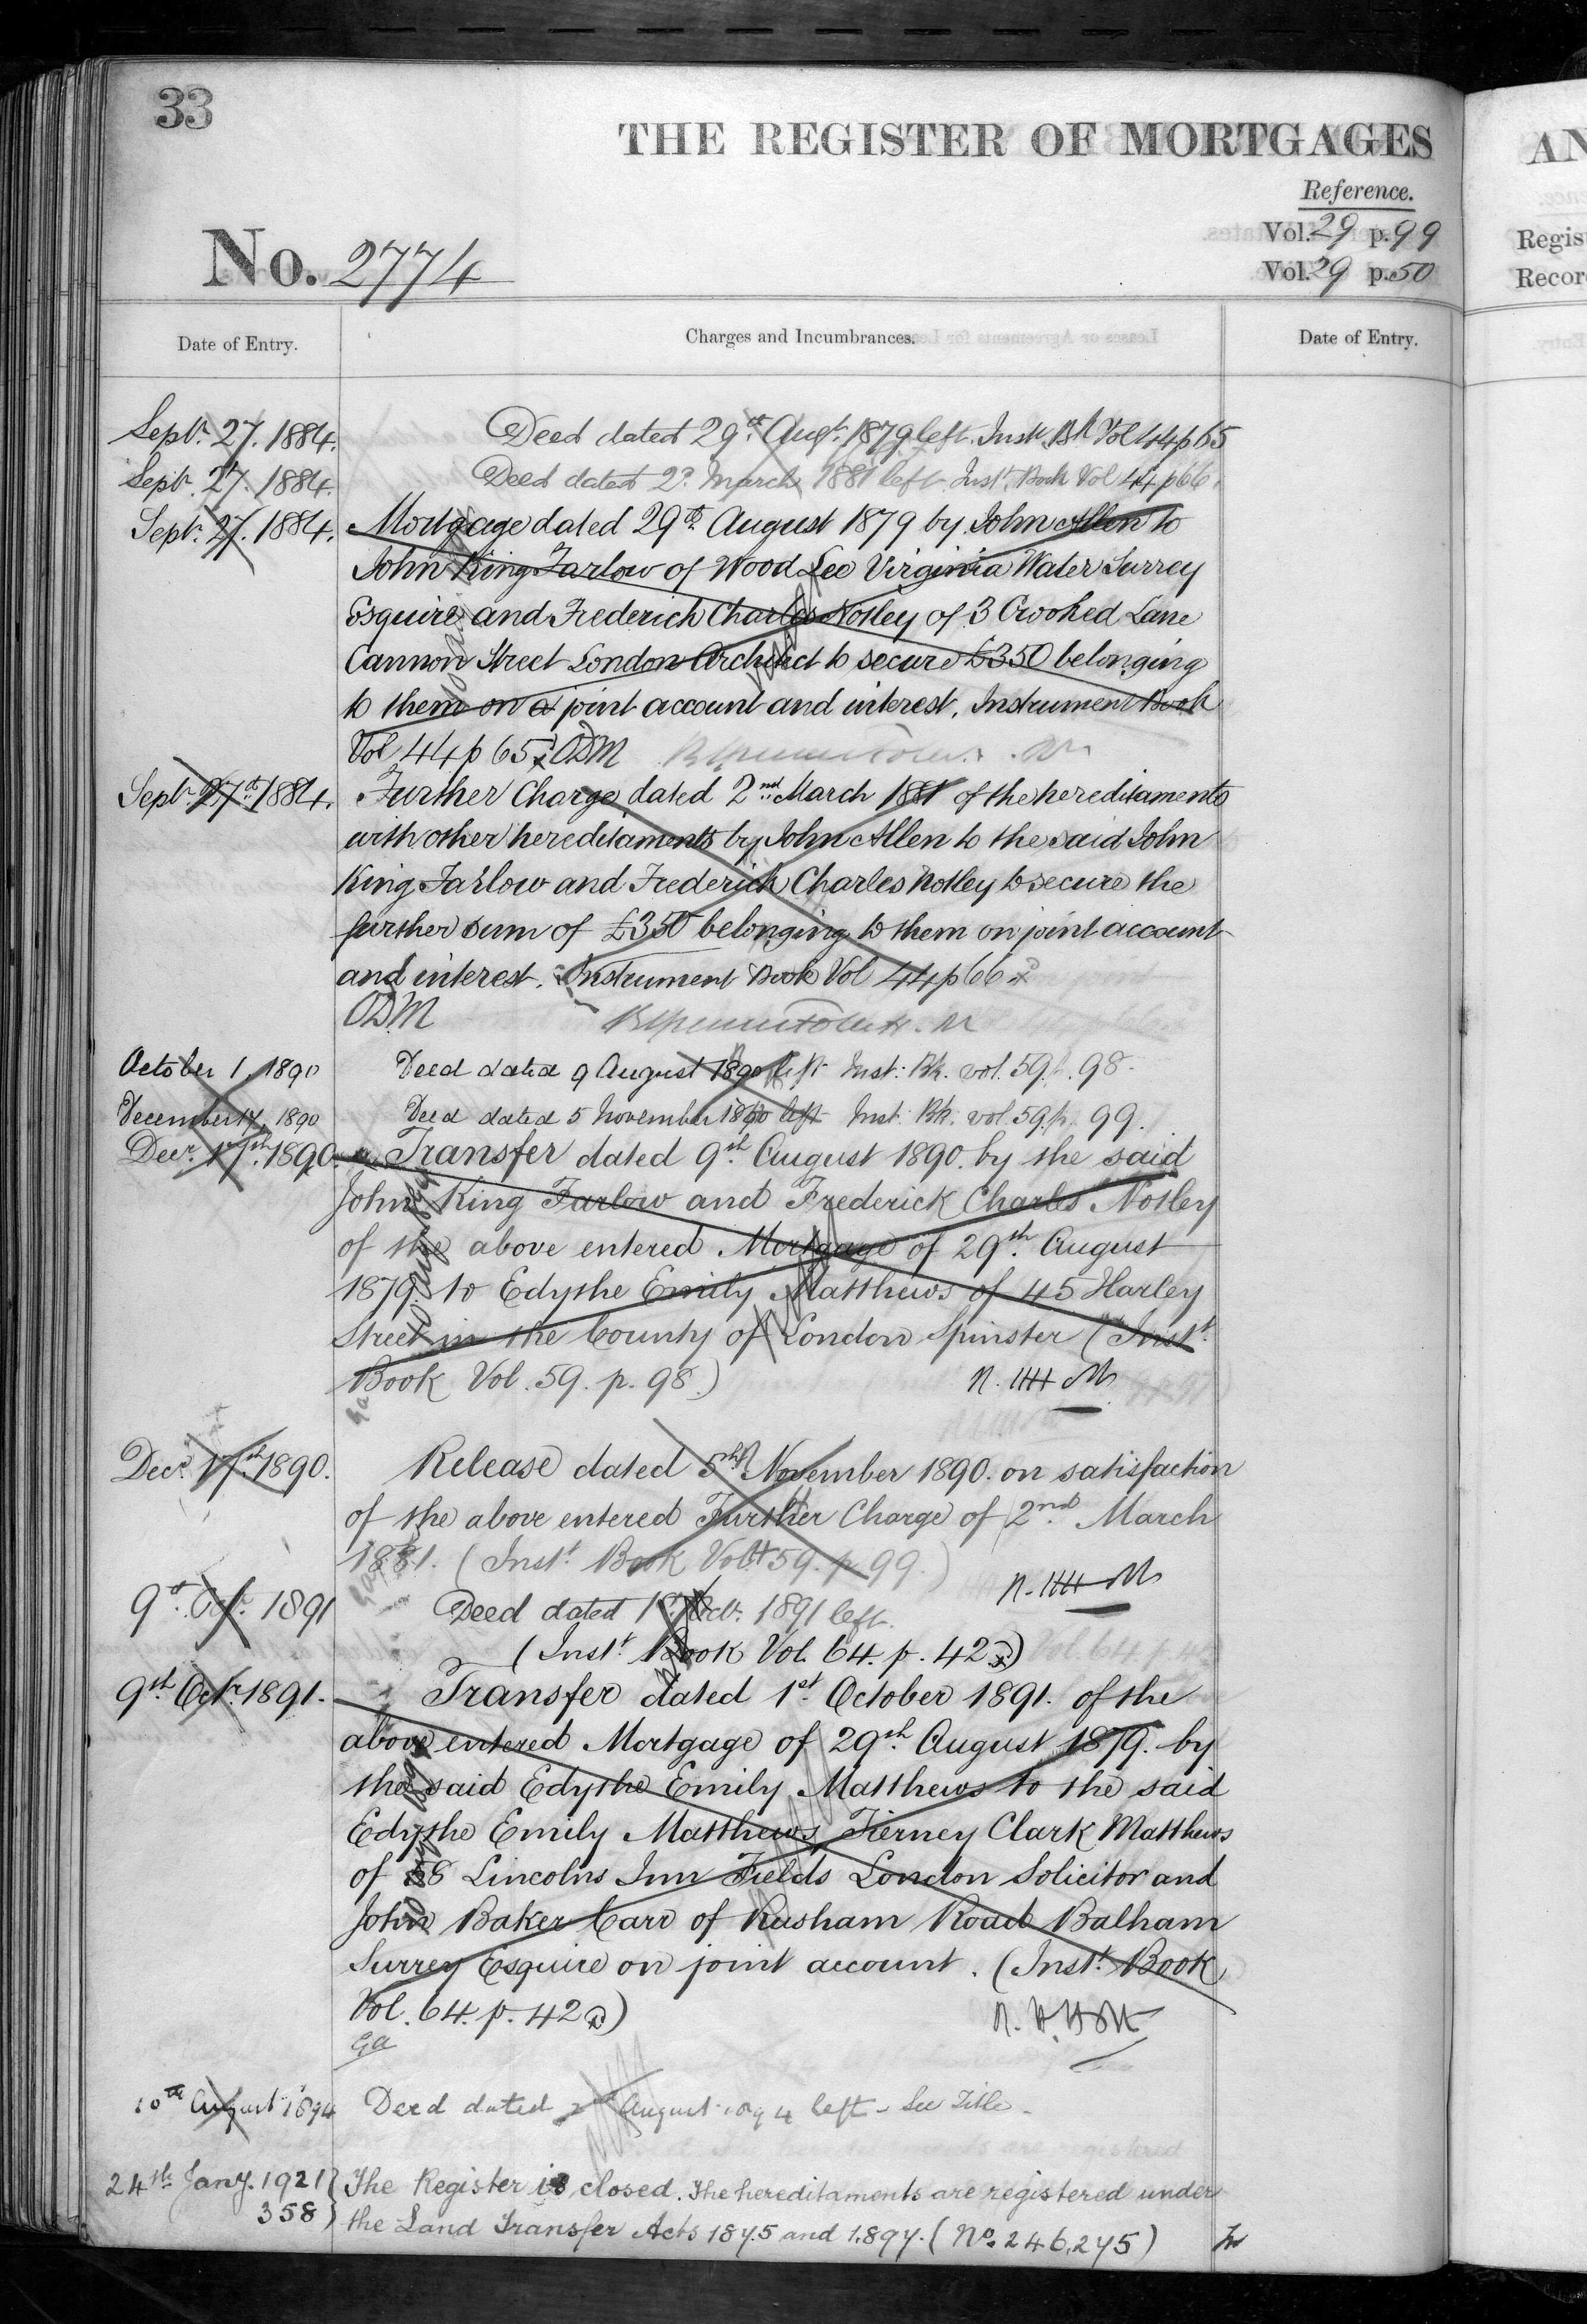 33
THE REGISTER OF MORTGAGES
Reference.
Vol. 29 p. 99
Vol. 29 p. 50
No. 2774
Date of Entry.
Charges and Incumbrances.
Date of Entry.
Septr. 27. 1884. Deed dated 29th Augt. 1879 left. Inst. Bk Vol 44 p 65
Septr. 27. 1884. Deed dated 2d. March 1881 left. Inst. Book Vol 44 p 66.
Septr. 27. 1884. Mortgage dated 29th August 1879 by John Allen to
John King Farlow of Wood Lee Virginia Water Surrey
Esquire and Frederich Charles Notley of 3 Crooked Lane
Cannon Street London Architect to secure £350 belonging
to them on a joint account and interest. Instrument Book
Vol 44 p 65. ODM
Septr. 27th 1884. Further Charge dated 2nd March 1881 of the hereditaments
with other hereditaments by John Allen to the said John
King Farlow and Frederich Charles Notley to secure the
further sum of £350 belonging to them on joint account
and interest. Instrument Book Vol 44 p 66
ODM
October 1, 1890 Deed dated 9 August 1890 left Inst: Bk. vol. 59. p. 98.
December 17, 1890 Deed dated 5 November 1890 left Inst. Bk. vol. 59. p. 99.
Decr. 17th. 1890. Transfer dated 9th. August 1890. by the said
John King Farlow and Frederick Charles Notley
of the above entered Mortgage of 29th. August
1879. to Edythe Emily Matthews of 45 Harley
Street in the County of London Spinster (Inst.
Book Vol. 59. p. 98.)
Decr. 17th. 1890. Release dated 5th November 1890. on satisfaction
of the above entered Further Charge of 2nd. March
1881. (Inst. Book Vol. 59. p. 99.)
9th. Octr. 1891 Deed dated 1st Oct. 1891 left.
(Inst. Book Vol. 64. p. 42)
9th. Octr. 1891. Transfer dated 1st. October 1891. of the
above entered Mortgage of 29th. August 1879. by
the said Edythe Emily Matthews to the said
Edythe Emily Matthews Tierney Clark Matthews
of 58 Lincolns Inn Fields London Solicitor and
John Baker Carr of Rusham Road Balham
Surrey Esquire on joint account. (Inst. Book
Vol. 64. p. 42)
Ga
10th August 1894 Deed dated 2nd August 1894 left - See Title.
24th Jany. 1921 The Register is closed. The hereditaments are registered under
358 the Land Transfer Acts 1875 and 1897. (No. 246,275)
AN
Regis
Recor